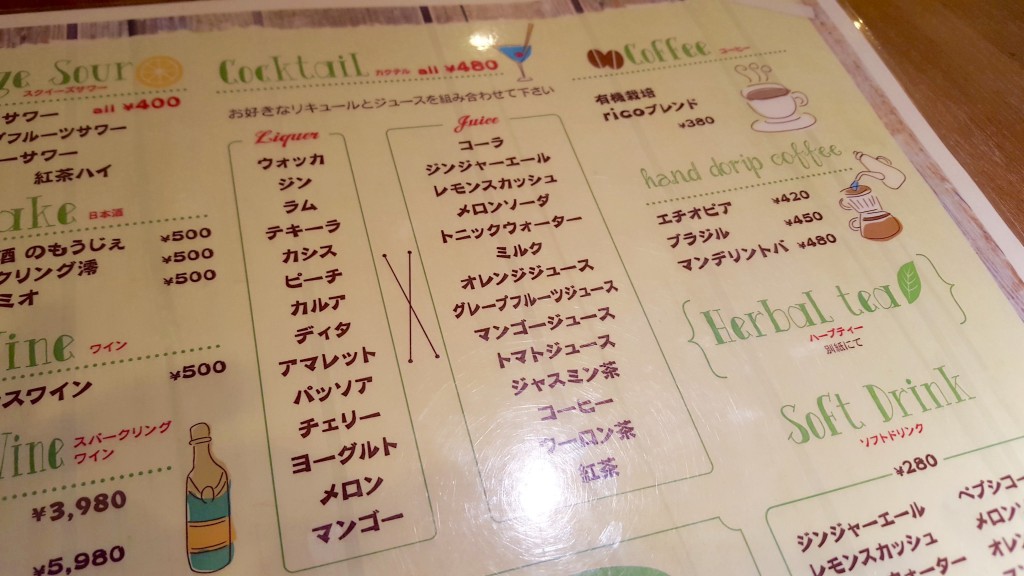 ze Sour
スクイーズサワー
サワー all ¥400
フルーツサワー
ーサワー
紅茶ハイ
ake 日本酒
酒 のもうじぇ ¥500
クリング澪 ¥500
ミオ ¥500
ine ワイン
スワイン ¥500
Wine スパークリング
ワイン
¥3,980
¥5,980
Cocktail カクテル all ¥480
お好きなリキュールとジュースを組み合わせて下さい
Liquer
ウォッカ
ジン
ラム
テキーラ
カシス
ピーチ
カルア
ディタ
アマレット
パッソア
チェリー
ヨーグルト
メロン
マンゴー
Juice
コーラ
ジンジャーエール
レモンスカッシュ
メロンソーダ
トニックウォーター
ミルク
オレンジジュース
グレープフルーツジュース
マンゴージュース
トマトジュース
ジャスミン茶
コーヒー
ウーロン茶
紅茶
Coffee コーヒー
有機栽培
ricoブレンド
¥380
hand dorip coffee
エチオピア ¥420
ブラジル ¥450
マンデリントバ ¥480
Herbal tea
ハーブティー
別紙にて
Soft Drink
ソフトドリンク
¥280
ジンジャーエール
レモンスカッシュ
ウォーター
ペプシコー
メロン
オレ